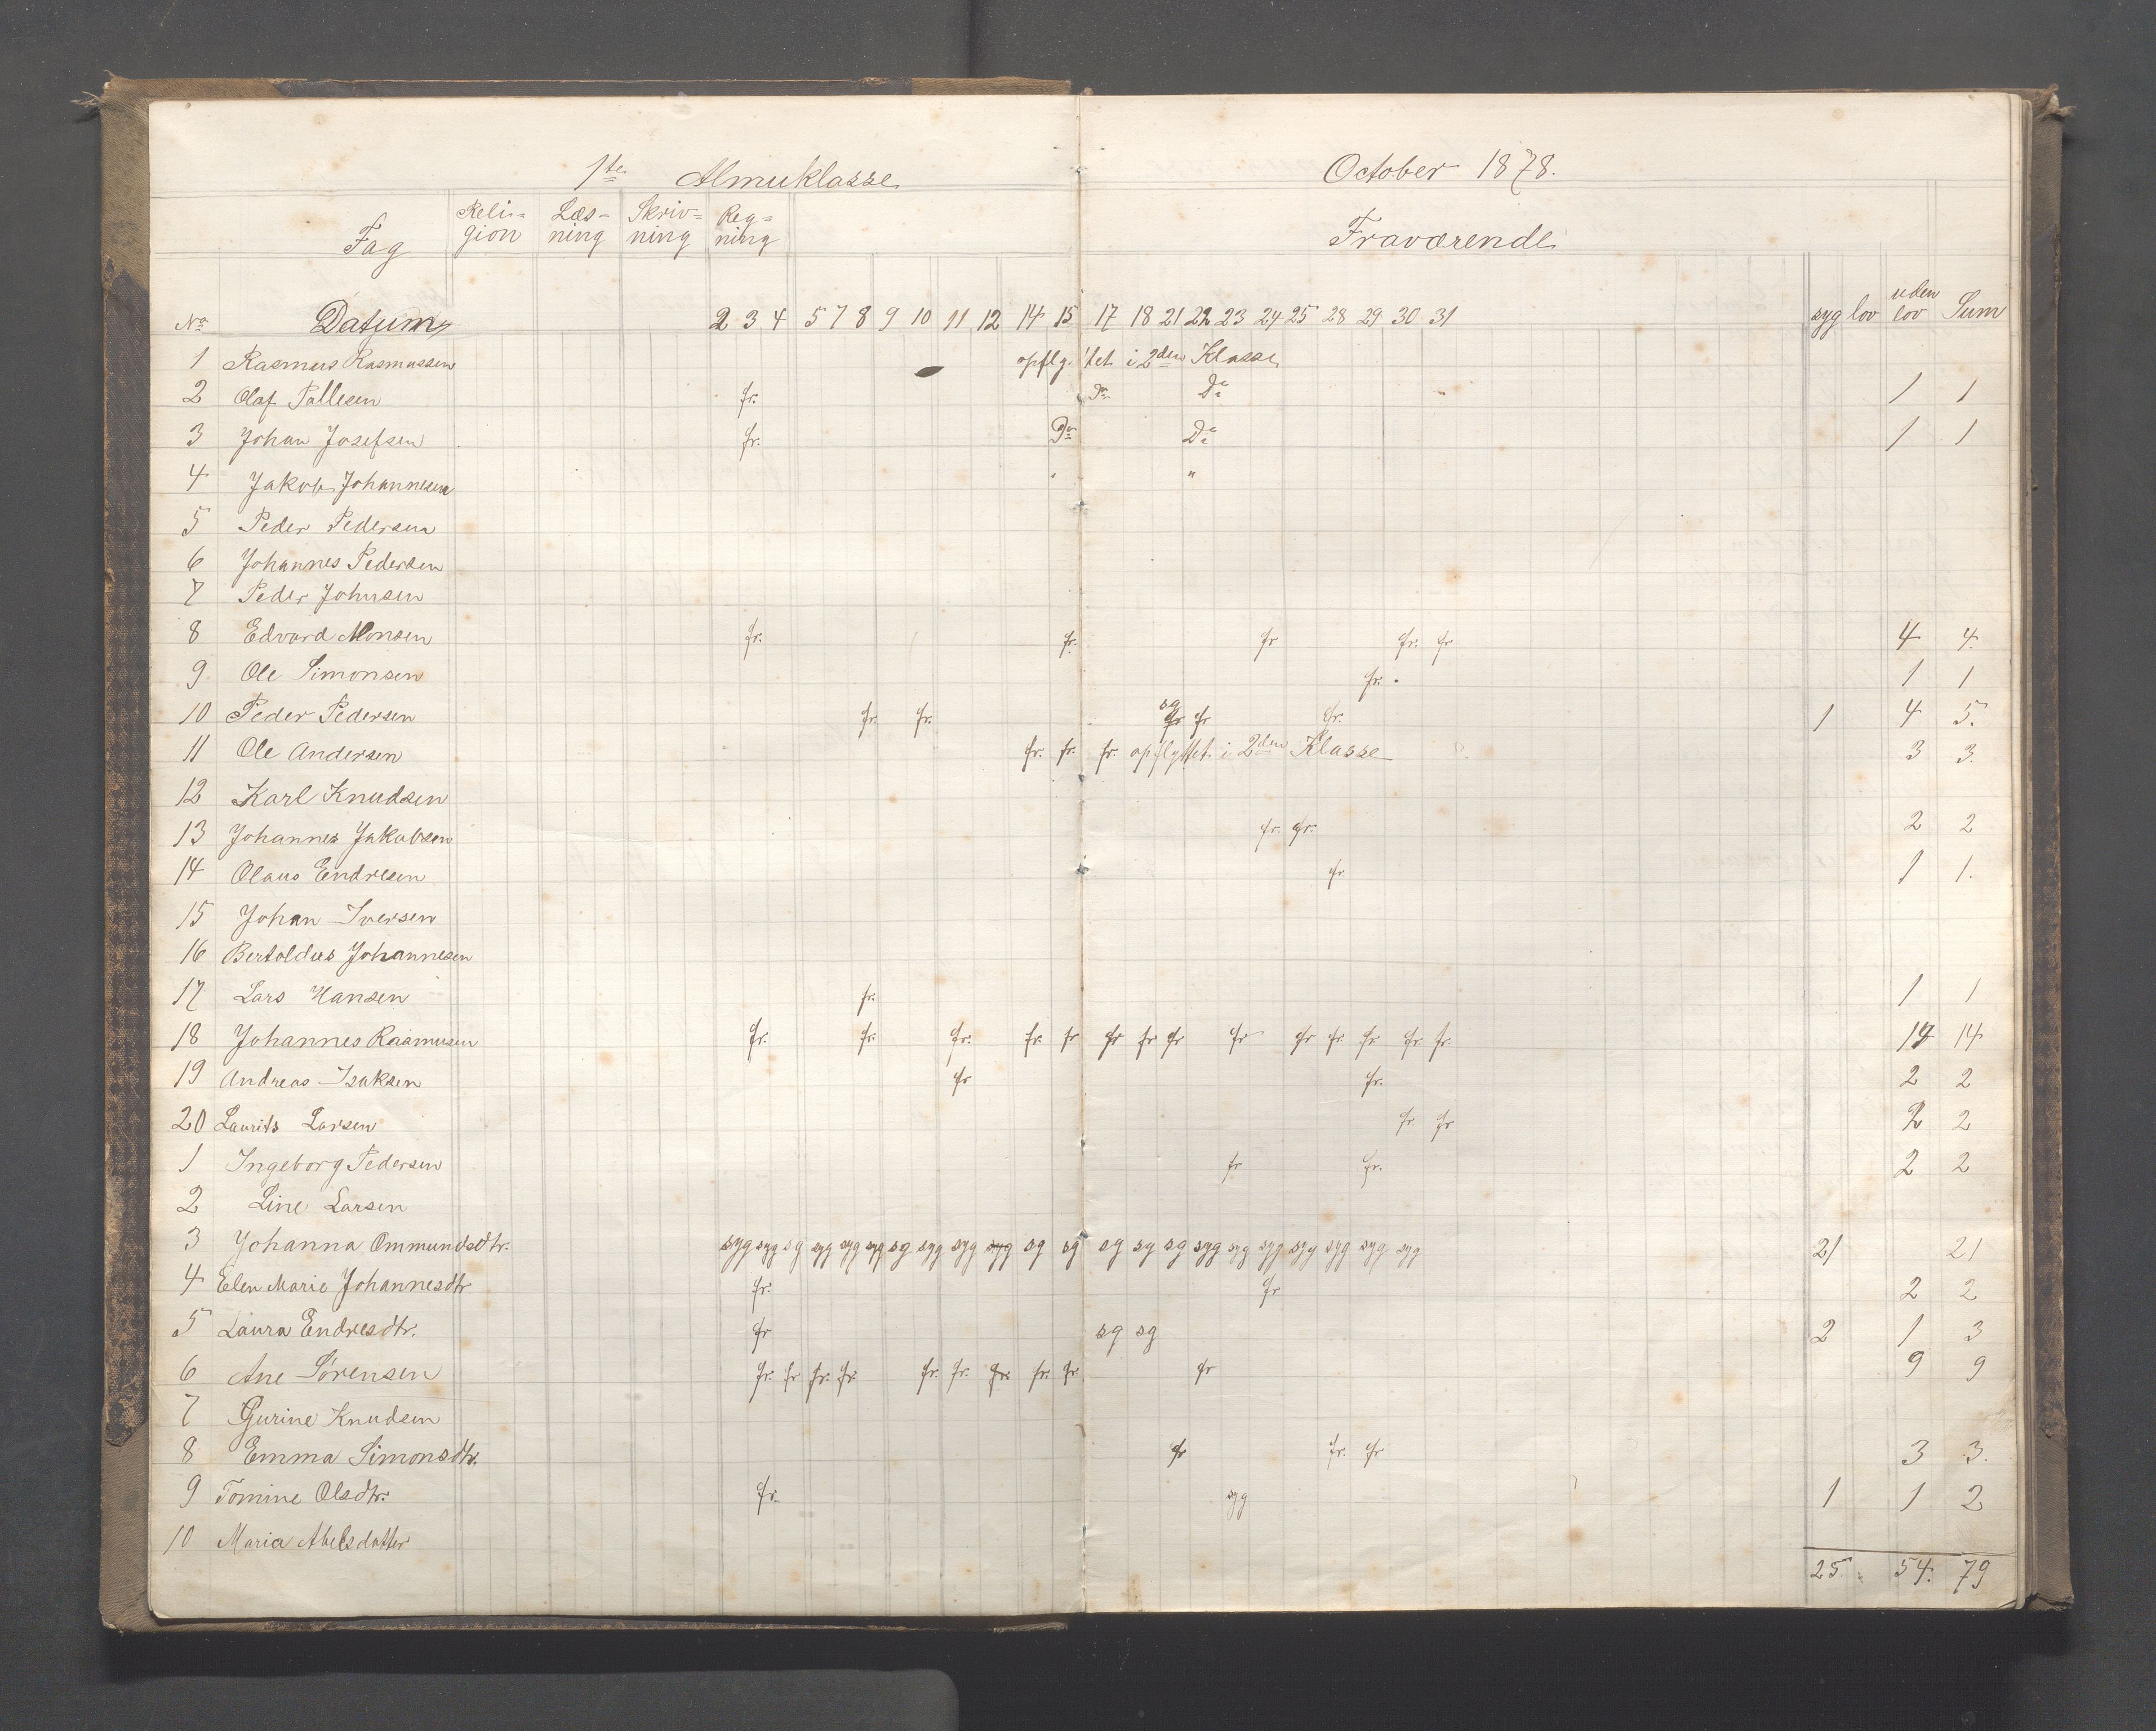 1ste Almuklasse October 1878.
Fag Reli-gion Læs-ning Skriv-ning Reg-ning Fraværende
No Datum 2 3 4 5 7 8 9 10 11 12 14 15 17 18 21 22 23 24 25 28 29 30 31 syg lov uden lov Sum
1 Rasmus Rasmussen opflyttet i 2den Klasse
2 Olaf Pallesen fr. Do Do 1 1
3 Johan Josefsen fr. Do Do 1 1
4 Jakob Johannesen " "
5 Peder Pedersen
6 Johannes Pedersen
7 Peder Johnsen
8 Edvard Monsen fr. fr. fr fr. fr 4 4.
9. Ole Simonsen fr. 1 1
10 Peder Pedersen fr. fr. sg fr fr fr. 1 4 5.
11 Ole Andersen fr. fr. fr. opflyttet i 2den Klasse 3 3.
12 Karl Knudsen
13 Johannes Jakobsen fr. fr. 2 2
14 Olaus Endresen fr. 1 1.
15 Johan Iversen
16 Bertoldus Johannesen
17 Lars Hansen fr. 1 1
18 Johannes Rasmusen fr. fr. fr. fr. fr fr fr fr fr fr fr. fr fr. fr. 14 14
19 Andreas Isaksen fr fr. 2 2
20 Laurits Larsen fr. fr 2 2
1 Ingeborg Pedersen fr fr. 2 2
2 Line Larsen
3 Johanna Ommundsdtr. syg syg sg syg syg syg sg syg syg syg sg sg sg sy sg syg syg syg syg syg syg syg 21 21
4 Elen Marie Johannesdtr fr. fr 2 2
5 Laura Endresdtr. fr sg sg 2 1 3
6 Ane Sørensen fr. fr fr. fr. fr. fr. fr. fr. fr. fr 9 9
7 Gurine Knudsen
8 Emma Simonsdtr. fr fr. fr 3 3.
9 Tomine Olsdtr. fr. syg 1 1 2
10 Maria Abelsdatter
25. 54. 79